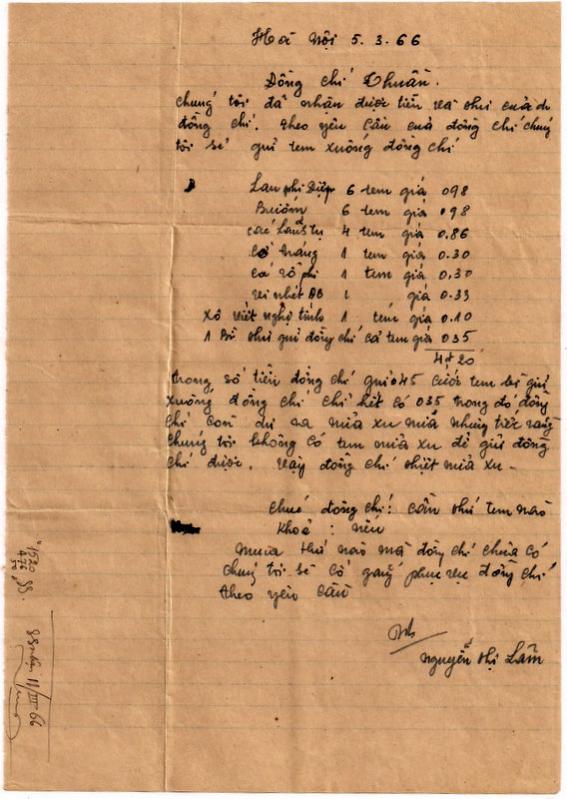 Hà Nội 5.3.66
Đồng chí Thuần.
chúng tôi đã nhận được tiền và thư của
đồng chí. theo yêu cầu của đồng chí chúng
tôi sẽ gửi tem xuống đồng chí
Lan phi Điệp 6 tem giá 098
Bướm 6 tem giá 098
các Lãnh tụ 4 tem giá 0.86
1 tem giá 0.30
cá rô phi 1 tem giá 0,30
1 giá 0.33
Xô viết nghệ tĩnh 1 tem giá 0.10
1 Bì thư gửi đồng chí cả tem giá 035
4đ20
trong số tiền đồng chí gửi 045 cước tem để gửi
xuống đồng chí chỉ hết có 035 trong đó đồng
chí còn dư ra nửa xu mà nhưng tiếc rằng
chúng tôi không có tem nửa xu để gửi đồng
chí được. vậy đồng chí thiệt nửa xu -
chúc đồng chí: cần thứ tem nào
khoẻ: nếu
mua thứ nào mà đồng chí chưa có
chúng tôi sẽ cố gắng phục vụ đồng chí
theo yêu cầu
Nguyễn thị Lâm
11/III 66